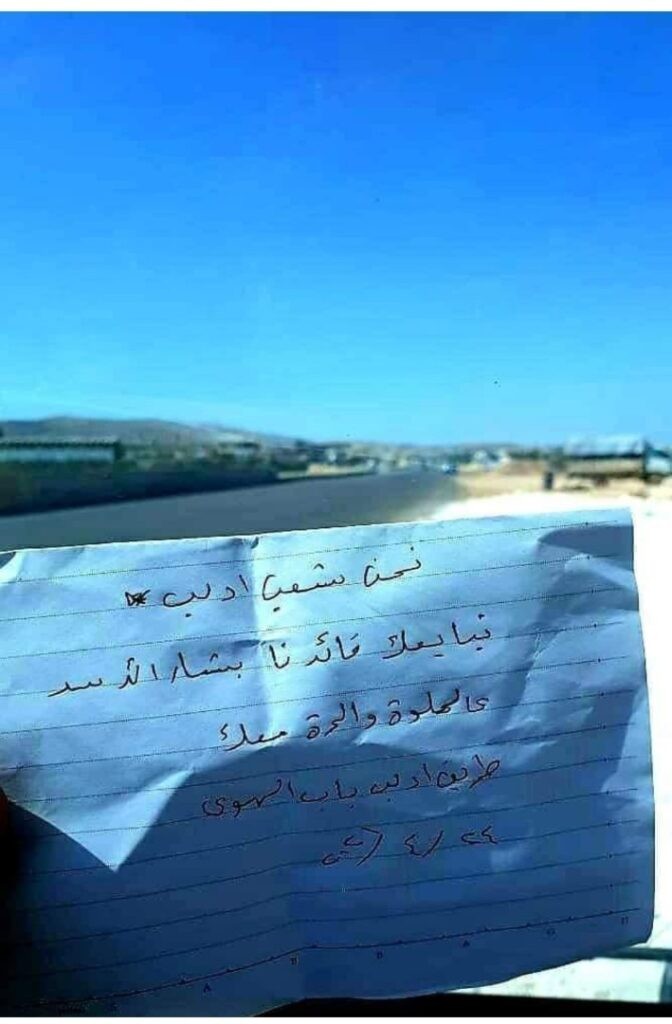 نحن شعب ادلب
نبايعك قائدنا بشار الأسد
عالحلوة والمرة معك
طريق ادلب باب الهوى
٢٤ / ٤ /